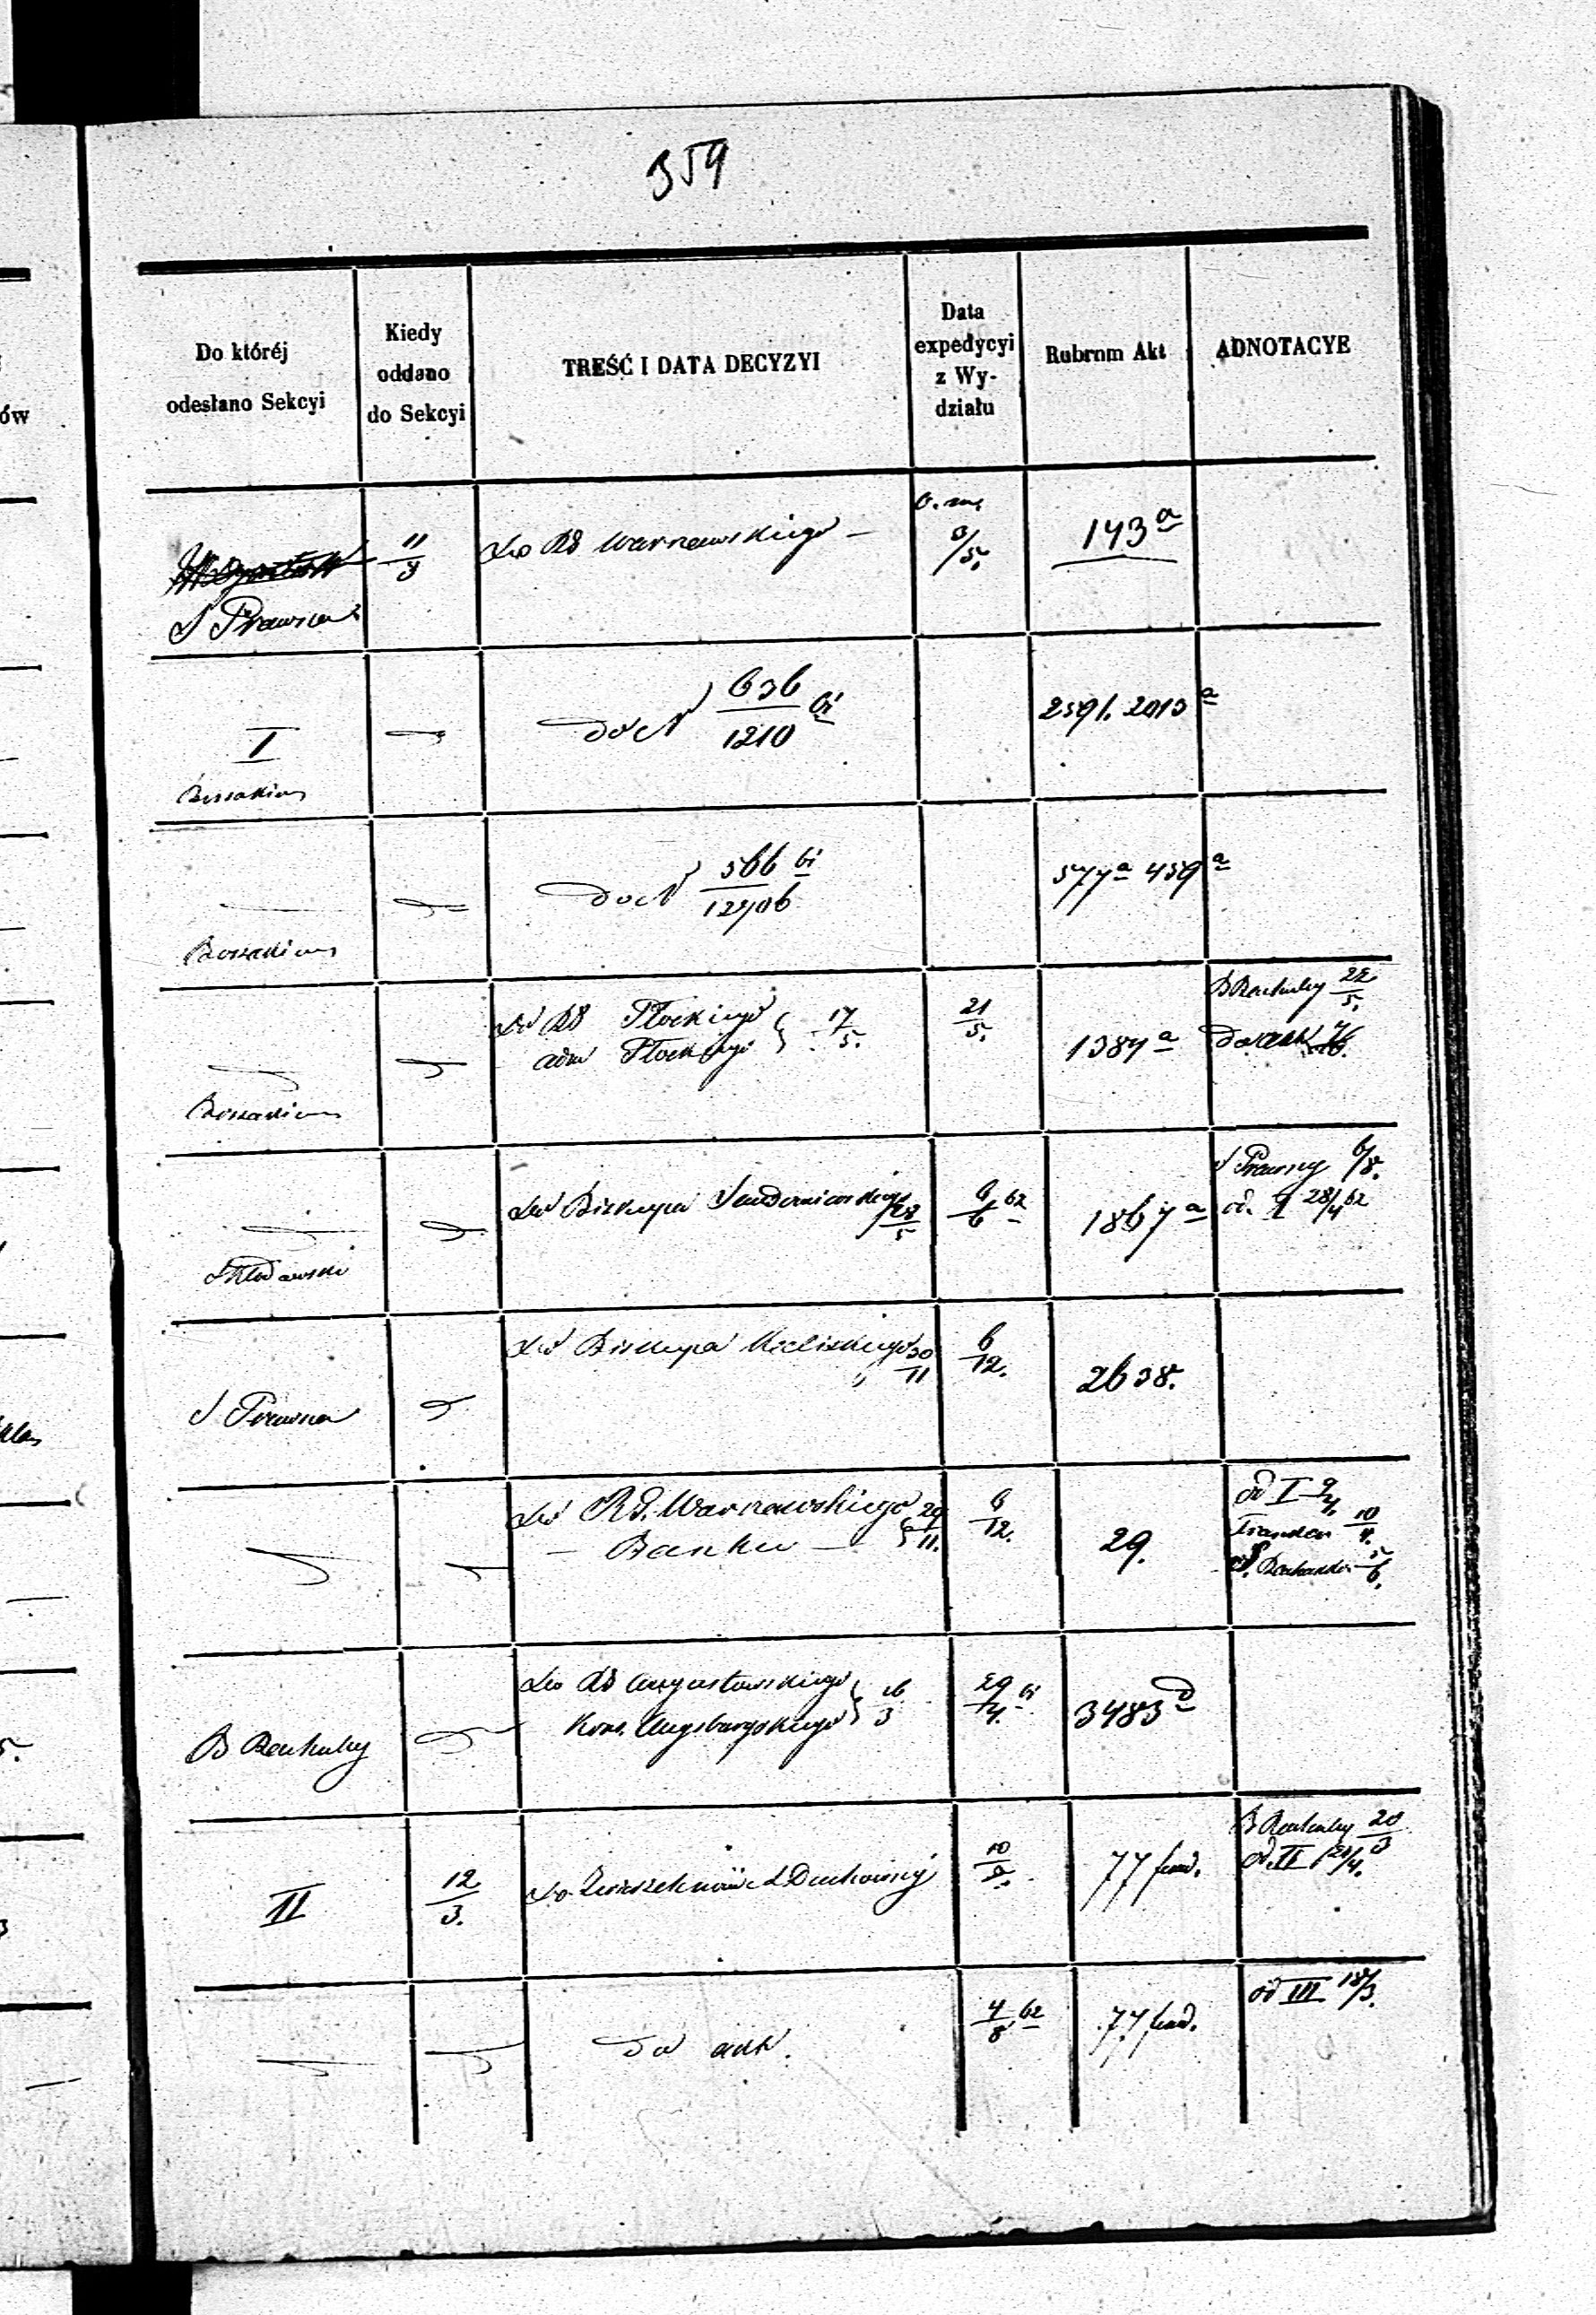 359
Do któréj
odesłano Sekcyi
Kiedy
oddano
do Sekcyi
TREŚĆ I DATA DECYZYI
Data
expedycyi
z Wy-
działu
Rubrum Akt
ADNOTACYE
S Prawna
11/3
Do RG Warszawskiego —
3/5.
143 a
I
do N 636/1210 61
2591. 2013 a
do N 566/12706 61
577 a 459 a
Do RG Płockiego
adm Płockiego } 17/5.
21/5.
1387 a
B Rachuby 22/5.
do akt
Skłodowski
Do Biskupa Sandomierskiego 28/5
6/6 62
1867 a
S Prawnej 6/5.
od I 28/4 62
S Prawna
Do Biskupa Kieleckiego 30/11
6/12.
2638.
Do RG. Warszawskiego
— Banku — } 29/11.
6/12.
29.
od I
10/4.
5/6.
B Rachuby
Do RG Augustowskiego
Kons. Augsburgskiego } 16/3
29/4. 61
3483 d
II
12/3.
Duchownej
10/5.
77 fund.
B Rachuby 20/3
od II 24/4.
do akt.
4/8 62
77 fund.
od III 18/3.